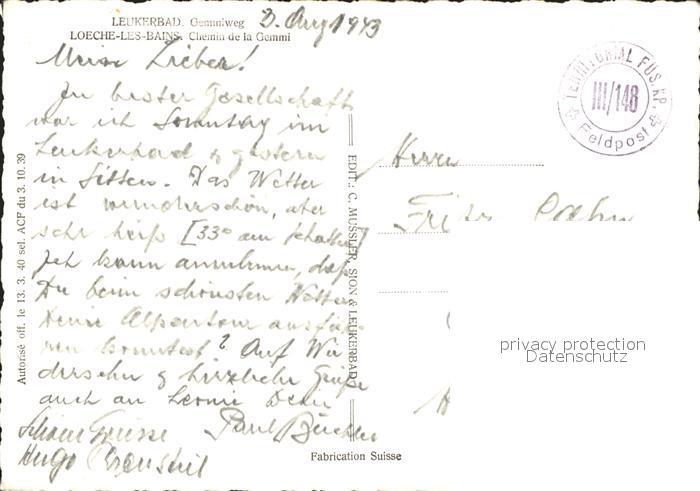 LEUKERBAD. Gemmiweg
LOECHE-LES-BAINS. Chemin de la Gemmi
2. Aug 1943
Meine Lieber!
In bester Gesellschaft
war ich Sonntag im
Leukerbad & gestern
in Sitten. Das Wetter
ist wunderschön, aber
sehr heiss [33° am Schatten]
Ich kann annehmen, dass
Du beim schönsten Wetter
Deine Alpentour ausfüh-
ren konntest? Auf Wie
dersehn & herzliche Grüsse
auch an Leonie Dein
Paul
Hugo
Autorisé off. le 13. 3. 40 sel. ACF du 3. 10. 39
EDIT.: C. MUSSLER, SION & LEUKERBAD
TERRITORIAL FÜS. KP.
III/148
Feldpost
Herrn
Fritz
privacy protection
Datenschutz
Fabrication Suisse